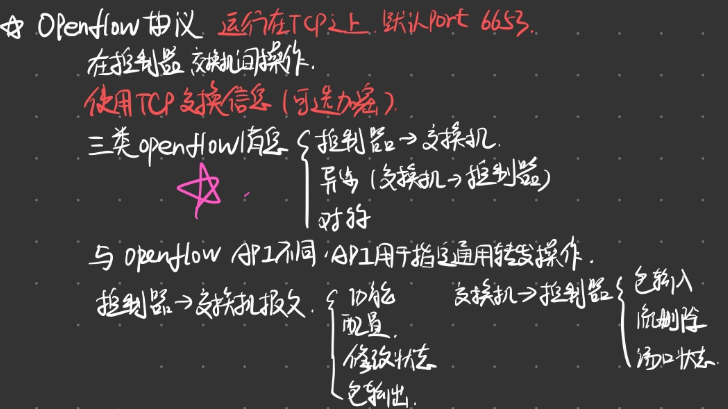 ☆ Openflow 协议 运行在TCP之上 默认Port 6653.
在控制器 交换机间操作.
使用TCP交换信息 (可选加密)
三类openflow信息 { 控制器→交换机.
异步 (交换机→控制器)
对称
与 openflow API不同, API用于指定通用转发操作.
控制器→交换机报文. { 功能
配置.
修改状态
包输出.
交换机→控制器 { 包输入
流删除
端口状态.